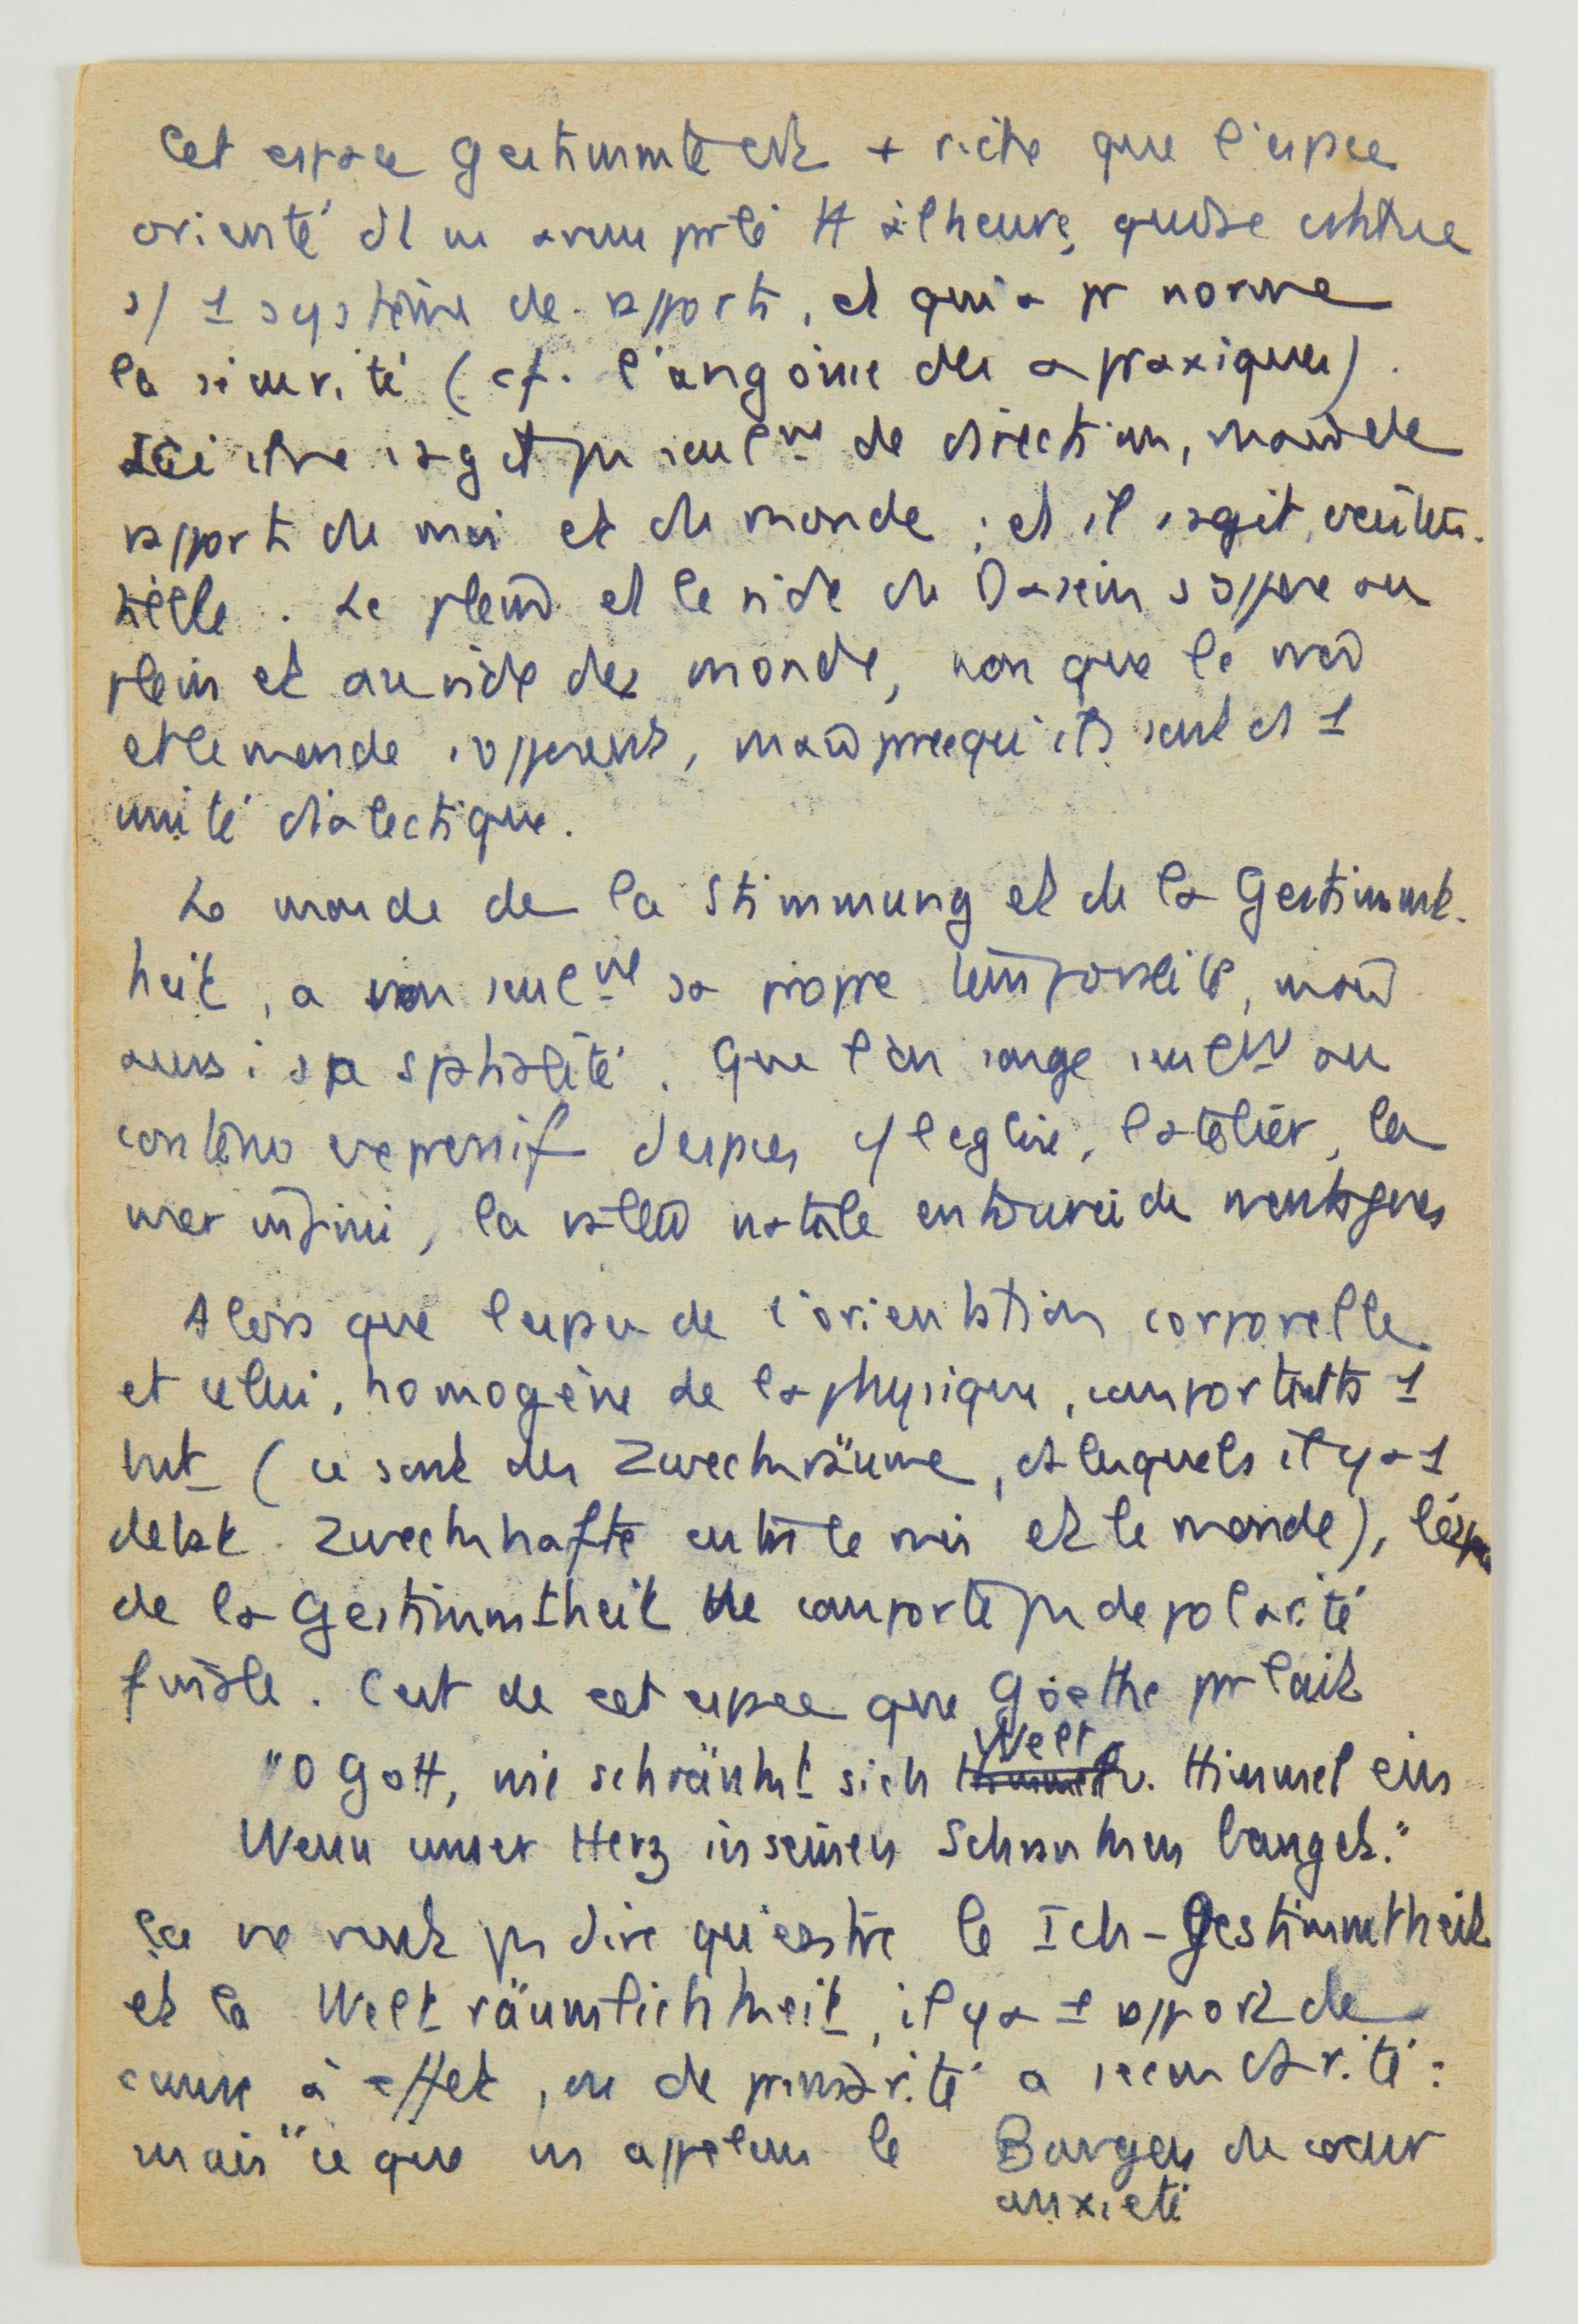 Cet espace gestimmte est + riche que l'espace
orienté dt ns avons parlé tt à l'heure, qui se constitue
s/ 1 système de rapports, et qui a pr norme
la sécurité (cf. l'angoisse des apraxiques).
Ici il ne s'agit pas seulemt de direction, mais de
rapports du moi et du monde ; et il s'agit
. Le plein et le vide du Dasein s'oppose au
plein et au vide des monde, non que le moi
et le monde s'opposent, mais parce qu'ils sont ds 1
unité dialectique.
Le monde de la Stimmung et de la Gestimmt-
heit, a non seulemt sa propre temporalité, mais
aussi sa spatialité. Que l'on songe seulemt au
contenu expressif d'espaces c/ l'église, l'atelier, la
mer infinie, la vallée natale entourée de montagnes
Alors que l'espace de l'orientation corporelle
et celui, homogène de la physique, comportent ts 1
but (ce sont des Zweckräume, ds lesquels il y a 1
débat zweckhafte entre le moi et le monde), l'espace
de la Gestimmtheit ne comporte pas de polarité
finale. C'est de cet espace que Goethe parlait
"O Gott, wie schränkt sich Welt u. Himmel ein
Wenn unser Herz in seinen Schranken banget."
Ça ne veut pas dire qu'entre le Ich-Gestimmtheit
et la Welt räumlichkeit, il y a 1 rapport de
cause à effet, ou de primarité à secondarité :
mais "ce que ns appelons le Bangen du coeur
anxiété